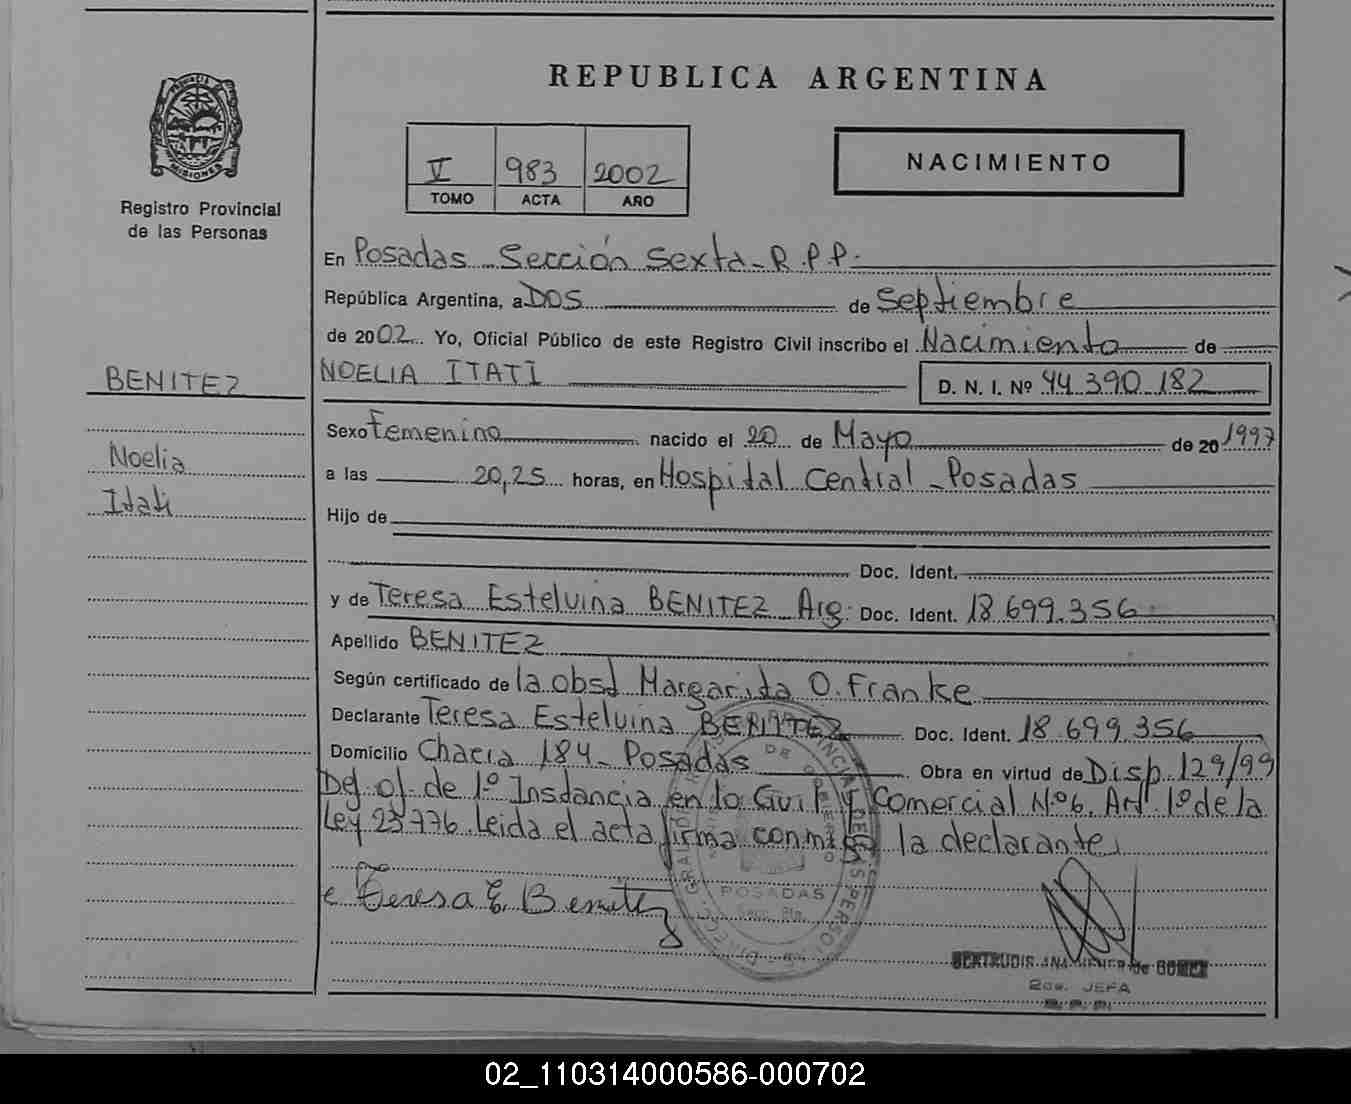 REPUBLICA ARGENTINA
V 983 2002
TOMO ACTA AÑO
NACIMIENTO
MISIONES
Registro Provincial
de las Personas
En Posadas Sección Sexta - R.P.P.
República Argentina, a DOS de Septiembre
de 2002 Yo, Oficial Público de este Registro Civil inscribo el Nacimiento de
BENITEZ
NOELIA ITATI D. N. I. Nº 44.390.182
Sexo Femenino nacido el 20 de Mayo de 20 1997
Noelia
Itati
a las 20,25 horas, en Hospital Central - Posadas
Hijo de
Doc. Ident.
y de Teresa Estelvina BENITEZ Arg. Doc. Ident. 18.699.356
Apellido BENITEZ
Según certificado de la obst Margarita O. Franke
Declarante Teresa Estelvina BENITEZ Doc. Ident. 18.699.356
Domicilio Chacra 184 - Posadas Obra en virtud de Disp. 129/99
de 1º Instancia en lo Civil y Comercial Nº6. Art. 1º de la
Ley 23776. Leida el acta firma conmigo la declarante
Teresa E. Benitez
POSADAS
GERTRUDIS ANA de GOMEZ
2da. JEFA
R. P. P.
02_110314000586-000702